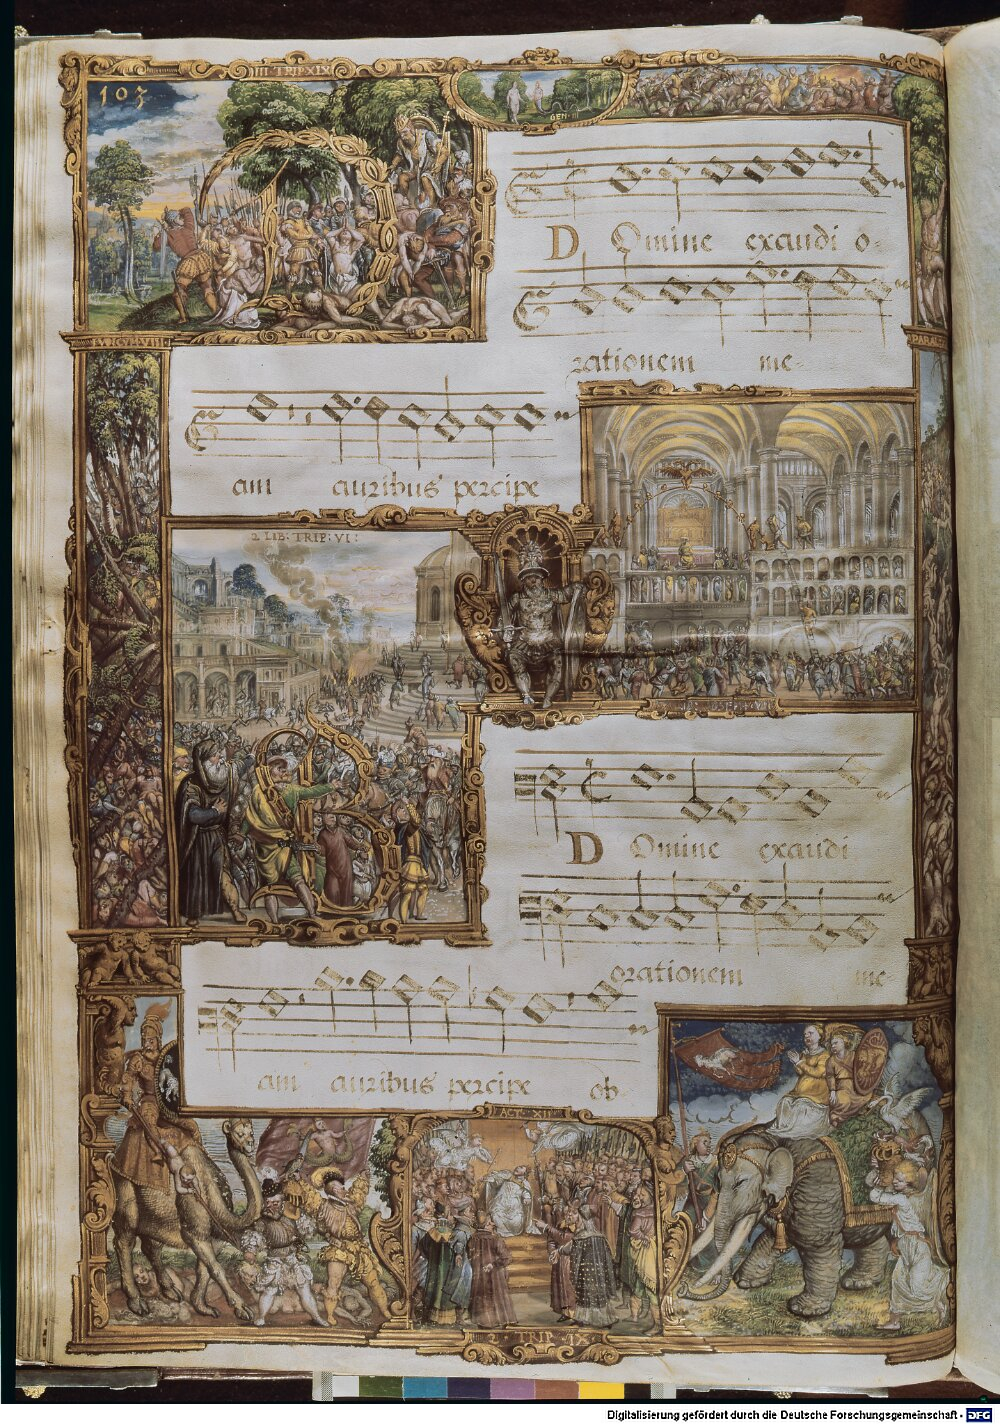 III TRIP XIX
103
GEN III
Domine exaudi o-
rationem me-
PARAL
am auribus percipe
2 LIB: TRIP: VI:
Domine exaudi
orationem me
am auribus percipe ob-
ACT: XII
2 · TRIP IX
Digitalisierung gefördert durch die Deutsche Forschungsgemeinschaft - DFG